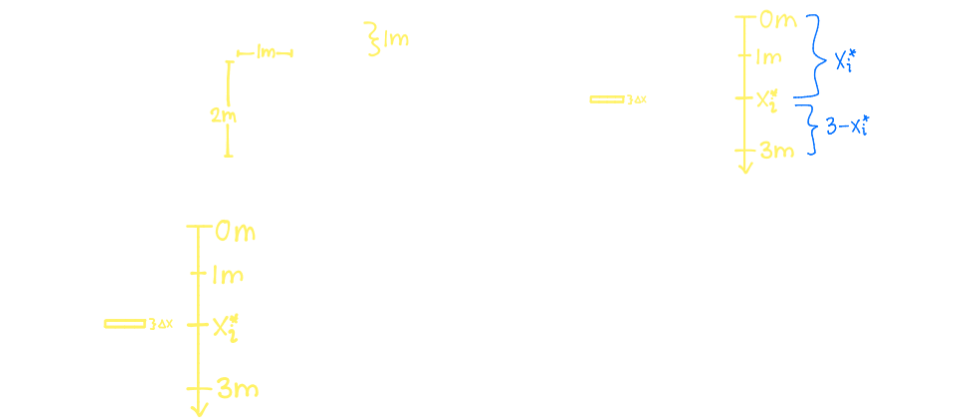 1m
1m
2m
0m
1m
Δx
xᵢ*
3m
xᵢ*
3-xᵢ*
0m
1m
Δx
xᵢ*
3m